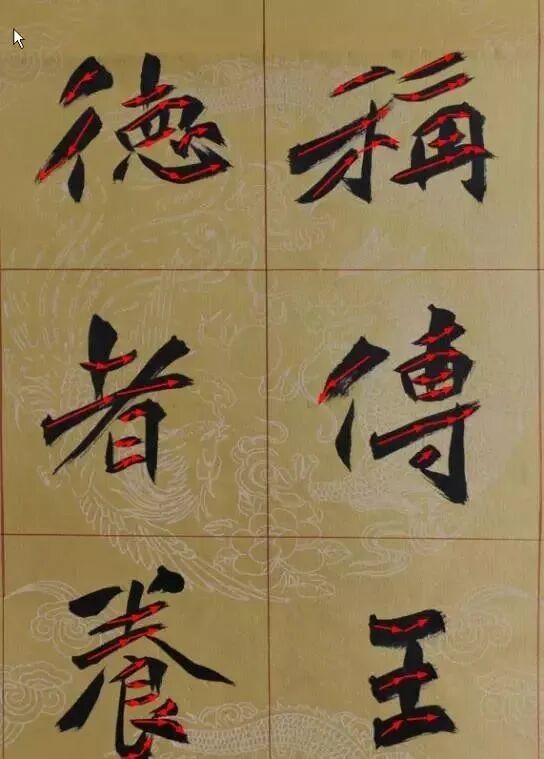 稱傳王
德者養